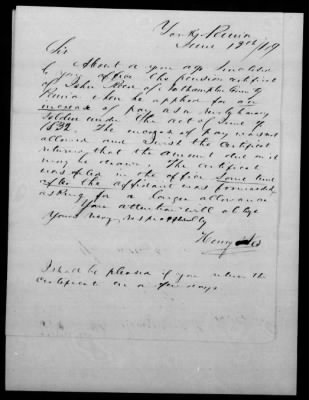 York, Penna
June 13th /49
Sir
About a year ago I mailed
to your office the pension certificate
of John of Northampton County
Penna when he applied for an
increase of pay as a Revolutionary
Soldier under the act of June 7
1832. The increase of pay was not
allowed and I wish the Certificate
returned that the amount due on it
may be drawn. The Certificate
was filed in the office some time
after the affidavit was forwarded
asking for a larger allowance
Your attention will oblige
Yours very respectfully
Henry
I shall be pleased if you return the
Certificate in a few days